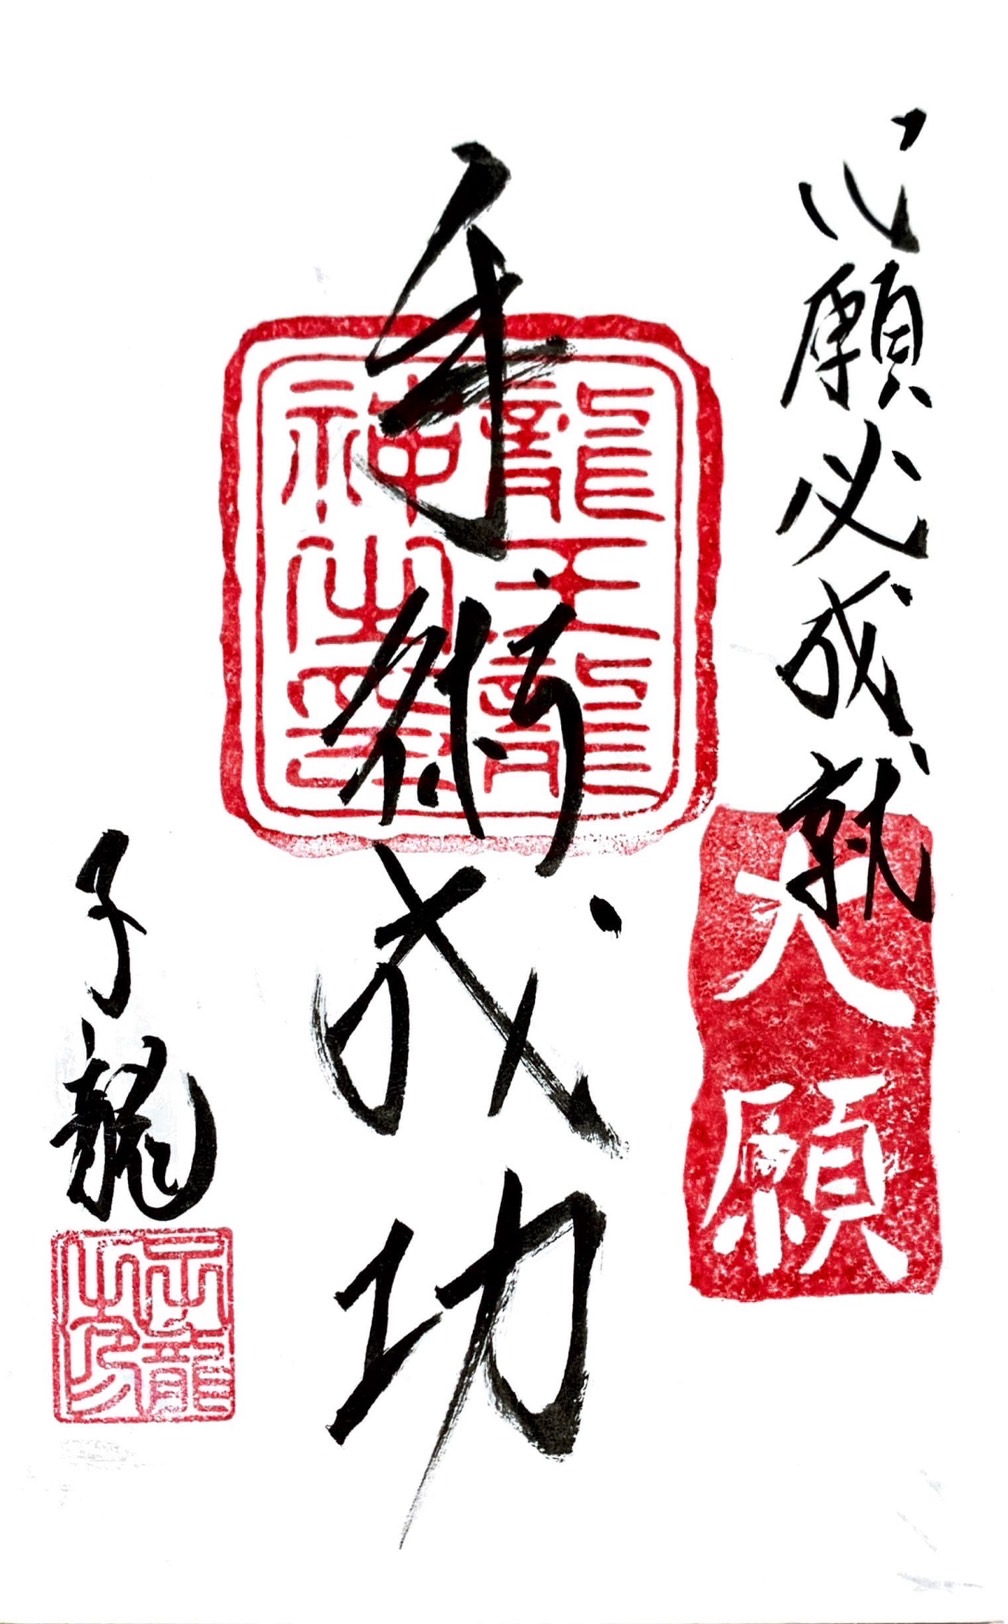 心願必成就
大願
手術成功
龍王龍
神之璽
子龍
子龍
之印